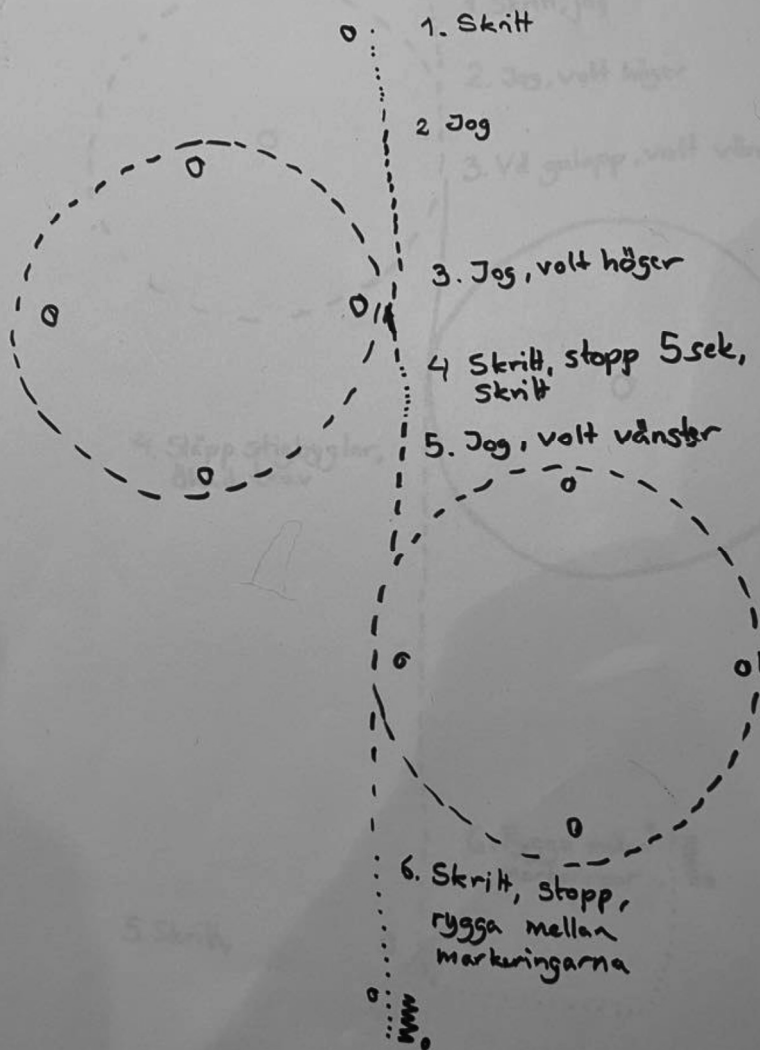 1. Skritt
2 Jog
3. Jog, volt höger
4 Skritt, stopp 5 sek,
skritt
5. Jog, volt vänster
6. Skritt, stopp,
rygga mellan
markeringarna
2. Jog, volt höger
5. Skritt,